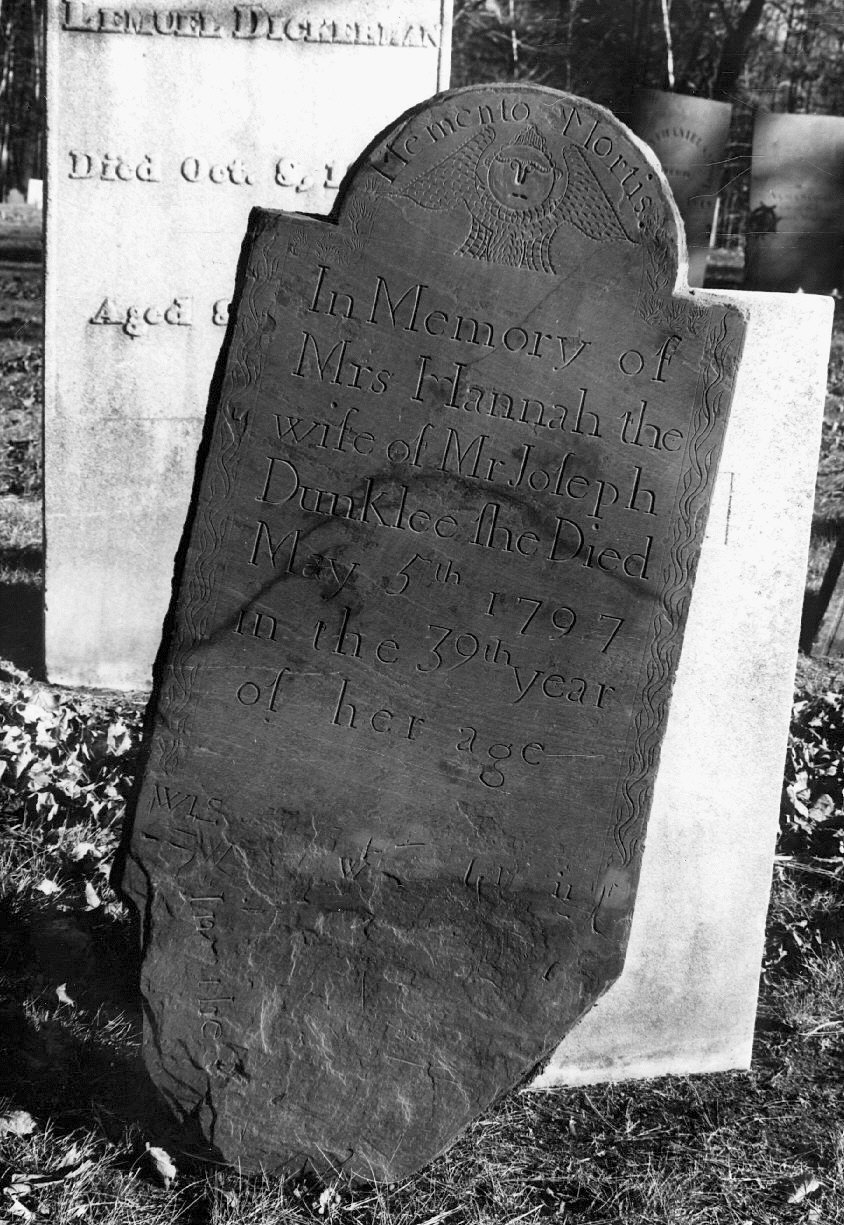 LEMUEL DICKERMAN
Died Oct. 8, 1
Aged
Memento Mortis.
In Memory of
Mrs Hannah the
wife of Mr Joſeph
Dunklee ſhe Died
May 5th 1797
in the 39th year
of her age